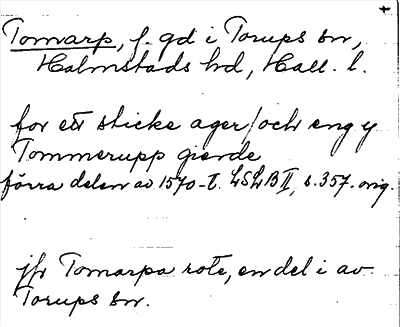 Tomarp, f. gd i Torups sn,
Halmstads hd, Hall. l.
for ett sticke ager/och eng y
Tommerupp gierde
förra delen av 1570-t. LSLB II, s. 357. orig.
jfr Tomarpa rote, en del i av
Torups sn.